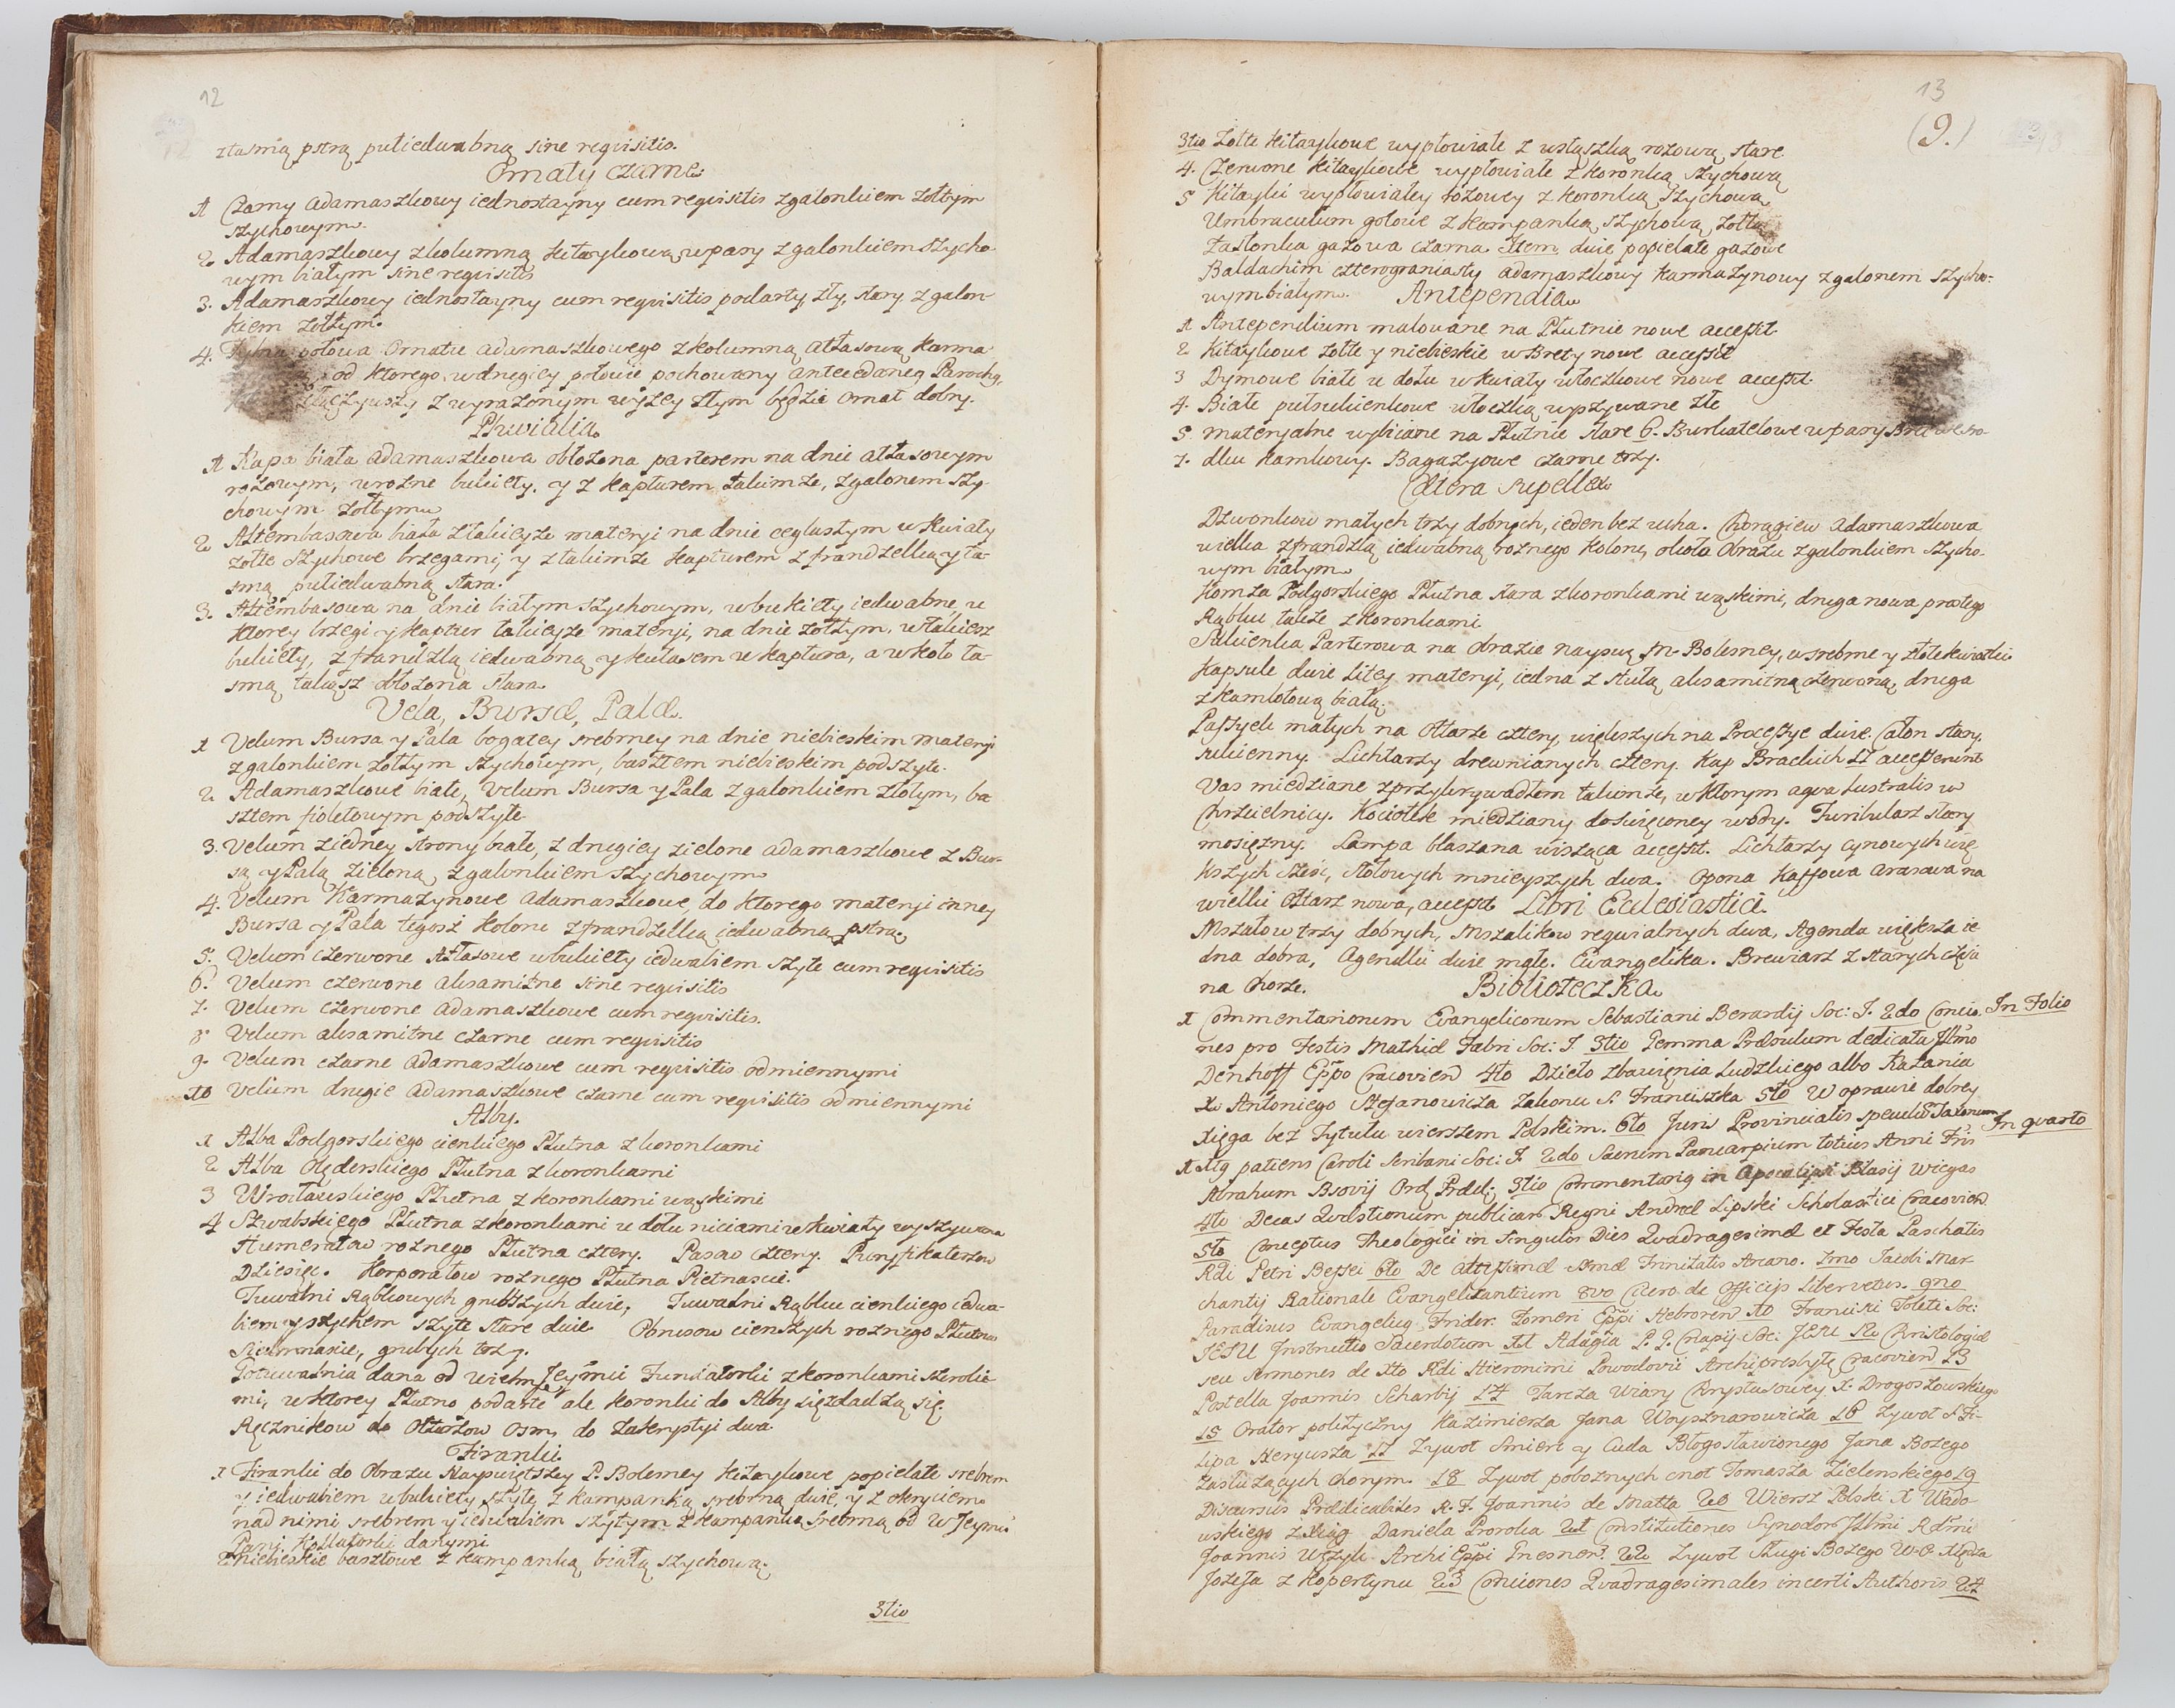 12
z tasmą pstrą pułiedwabną sine reqvisitis.
Ornaty czarne.
1 Czarny Adamaszkowy iednostayny cum reqvisitis z galonkiem żołtym
szychowym.
2 Adamaszkowy z kolumną kitaykową w pasy z galonkiem szycho-
wym białym sine reqvisitis
3. Adamaszkowy iednostayny cum reqvisitis podarty, zły, stary z galon-
kiem żołtym.
4. Tylna połowa Ornatu adamaszkowego z kolumną attłasową karma
od ktorego w drugiey połowie pochowany antecedaneg Parochg,
złączywszy z wyrażonym wyżey złym będzie Ornat dobry.
Pluvialia.
1 Kapa biała adamaszkowa obłożona parterem na dnie atłasowym
rożowym, w rożne bukiety, y z kapturem takimże, z galonem szy-
chowym żołtym
2 Altembasowa biała z takieyże materyi na dnie ceglastym w kwiaty
żołte szychowe brzegami, y z takimże kapturem z frandzelką y ta-
smą pułiedwabną stara.
3. Altembasowa na dnie białym szychowym, w bukiety iedwabne, u
ktorey brzegi y kaptur takieyże materyi, na dnie żołtym, w takiesz
bukiety, z frandzlą iedwabną y kutasem u kaptura, a w koło ta-
smą takąsz obłożona stara.
Vela, Bursæ, Palæ.
1 Velum Bursa y Pala bogatey srebrney na dnie niebieskim materyi
z galonkiem żołtym szychowym, basztem niebieskim podszyte.
2 Adamaszkowe białe, Velum Bursa y Pala z galonkiem złotym, ba
sztem fioletowym podszyte.
3. Velum z iedney strony białe, z drugiey zielone adamaszkowe z Bur-
są y Palą zieloną, z galonkiem szychowym
4. Velum Karmazynowe Adamaszkowe, do ktorego materyi inney
Bursa y Pala tegosz koloru z frandzelką iedwabną pstrą.
5. Velum czerwone Atłasowe w bukiety iedwabiem szyte cum reqvisitis
6. Velum czerwone aksamitne sine reqvisitis
7. Velum czerwone adamaszkowe cum reqvisitis.
8. Velum aksamitne czarne cum reqvisitis
9. Velum czarne adamaszkowe cum reqvisitis odmiennymi
10 Velum drugie adamaszkowe czarne cum reqvisitis odmiennymi
Alby.
1 Alba Podgorskiego cienkiego Płutna z koronkami
2 Alba Olęderskiego Płutna z koronkami
3 Wrocławskiego Płutna z koronkami wąskimi
4 Szwabskiego Płutna z koronkami u dołu niciami w kwiaty wyszywana
Humerałow rożnego Płutna cztery. Pasow cztery. Puryfikaterzow
Dziesięc. Korporałow rożnego Płutna Pietnascie.
Tuwalni Rąbkowych grubszych dwie, Tuwalni Rąbku cienkiego iedwa-
biem y szychem szyte stare dwie Obrusow cienszych rożnego Płutna
Siedmnascie, grubych trzy.
Potuwalnia dana od wielm Jeymci Fundatorki z koronkami szeroki-
mi, w ktorey Płutno podarte ale koronki do Alby się zdadzą się.
Ręcznikow do Ołtarzow osm, do Zakrystyi dwa
Firanki.
1 Firanki do Obrazu Nayswiętszey P. Bolesney kitaykowe popielate srebrem
y iedwabiem w bukiety szyte, z kampanką srebrną dwie, y z okryciem
nad nimi srebrem y iedwabiem szytym z kampanką srebrną od W Jeymci
Pani Kollatorki danymi
2 niebieskie basztowe z kampanką białą szychową.
3tio
13
(9.)
3tio Żołte kitaykowe wypłowiałe z wstąszką rożową stare
4. Czerwone kitaykowe wypłowiałe z koronką szychową
5 Kitayki wypłowiałey rożowey z koronką szychową
Umbraculum gotowe z kampanką szychową żołtą
Zasłonka gazowa czarna Item dwie popielate gazowe
Baldachim czterograniasty adamaszkowy karmazynowy z galonem szycho-
wym białym. Antependia
1 Antependium malowane na Płutnie nowe accessit.
2 Kitaykowe żołte y niebieskie w Brety nowe accessit
3 Dymowe białe u dołu w kwiaty włoczkowe nowe accessit.
4. Białe pułsukienkowe włoczką wyszywane złe
5. materyalne wybiiane na Płutnie stare 6. Burkatelowe w pasy Bret we sro-
7. dku kamkowy. Bagazyowe czarne trzy.
Cætera supellex
Dzwonkow małych trzy dobrych, ieden bez ucha. Chorągiew adamaszkowa
wielka z frandzlą iedwabną rożnego koloru, około Obrazu z galonkiem szycho-
wym białym
Komża Podgorskiego Płutna stara z koronkami wąskimi, druga nowa prostego
Rąbku także z koronkami
Sukienka Parterowa na Obrazie nayswię M. Bolesney, w srebrne y złote kwiatki
Kapsule dwie litey materyi, iedna z stułą aksamitną czerwoną, druga
z kamlotową białą.
Passyek małych na Ołtarze cztery, większych na Processye dwie. Całon stary,
sukienny. Lichtarzy drewnianych cztery. Kap Brackich 17 accesserunt
Vas miedziane z przykrywadłem takimże, w ktorym aqva lustralis w
Chrzcielnicy. Kociołek miedziany do swięconey wody. Turibularz stary
mosiężny. Lampa blaszana wisząca accessit. Lichtarzy cynowych wię
kszych sześć, stołowych mnieyszych dwa. Opona kassowa arasowa na
wielki Ołtarz nowa, accessit Libri Ecclesiastici.
Mszałow trzy dobrych, Mszalikow reqvialnych dwa, Agenda większa ie
dna dobra, Agendki dwie małe. Evangelika. Brewiarz z starych część
na Chorze. Biblioteczka.
1 Commentariorum Evangelicorum Sebastiani Berardij Soc: J. 2do Concio- In Folio
nes pro Festis Mathiæ Fabri Soc: J 3tio Gemma Præsulum dedicata Illmo
Denhoff Eppo Cracovien 4to Dzieło zbawięnia Ludzkiego albo Kazania
X. Antoniego Stefanowicza Zakonu S. Franciszka 5to W oprawie dobrey
Xięga bez Tytułu wierszem Polskim. 6to Juris Provincialis speculū Saxonum In qvarto
1 Xtg patiens Caroli Scribani Soc: J. 2do Sacrum Pancarpium totius Anni Fris
Abrahum Bsovij Ord Præd: 3tio Commentarig in Apocalipsi Blasij Wiegas
4to Decas Qvæstionum publicar Regni Andreæ Lipski Scholastici Cracovien
5to Conceptus Theologici in singulos Dies Qvadragesimæ et Festa Paschatis
Rdi Petri Bessei 6to De Altissimæ Smæ Trinitatis Arcano. 7mo Jacobi Mar
chantij Rationale Evangelizantium 8vo Cicero de Officijs liber vetus. 9no
Paradisus Evangelicg Frider. Fomeri Eppi Hebronen 10 Francisci Toleti Soc:
JESU Instructio Sacerdotum 11 Adagia P. G. Cnapij Soc: JESU 12 Christologiæ
seu sermones de Xto Rdi Hieronimi Powodovii Archipresbytę Cracovien 13
Postella Joannis Scharbij 14 Tarcza wiary Chrystusowey X. Drogoszowskiego
15 Orator polityczny Kazimierza Jana Woysznarowicza 16 Zywot S. Fi-
lipa Neryusza 17 Zywot Smierc y Cuda Błogosławionego Jana Bożego
zasłużących chorym. 18 Zywot pobożnych cnot Tomasza Zielenskiego 19
Discursus Prædicabiles R. F. Joannis de Matta 20 Wiersz Polski X Wado-
wskiego z Xiąg Daniela Proroka 21 Constitutiones Synodor Illmi Rdmi
Joannis Wężyk Archi Eppi Gnesnen. 22 Zywot Sługi Bożego W. O. Xiędza
Jozefa z Kopertynu 23 Conciones Qvadragesimales incerti Authoris 24